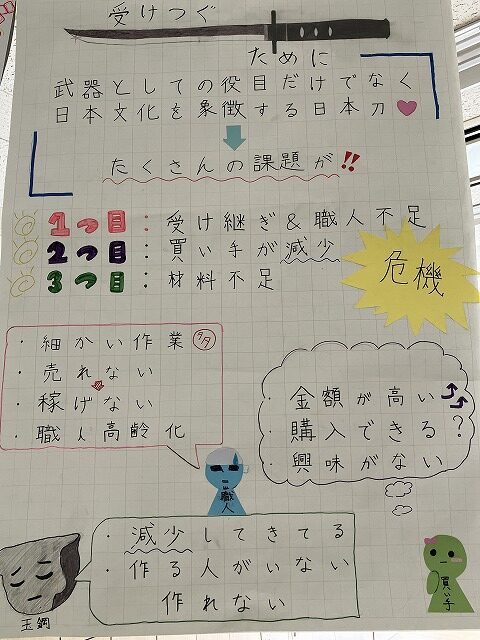 受けつぐ
ために
武器としての役目だけでなく
日本文化を象徴する日本刀
たくさんの課題が!!
1つ目：受け継ぎ&職人不足
2つ目：買い手が減少
3つ目：材料不足
危機
・細かい作業 多
・売れない
・稼げない
・職人高齢化
職人
・金額が高い
・購入できる?
・興味がない
買い手
・減少してきてる
・作る人がいない
作れない
玉鋼